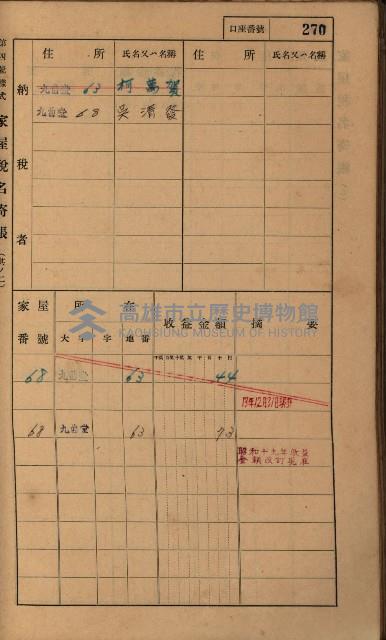 口座番號 270
第四號樣式 家屋稅名寄帳（其ノ一）
納稅者
住所 氏名又ハ名稱 住所 氏名又ハ名稱
九曲堂 63 柯萬賀
九曲堂 68 吳清發
家屋番號 所在 收益金額 摘要
大字 字 地番
68 九曲堂 63 44
19年12月31日
68 九曲堂 63 73
昭和十九年收益
金額改訂
高雄市立歷史博物館
KAOHSIUNG MUSEUM OF HISTORY